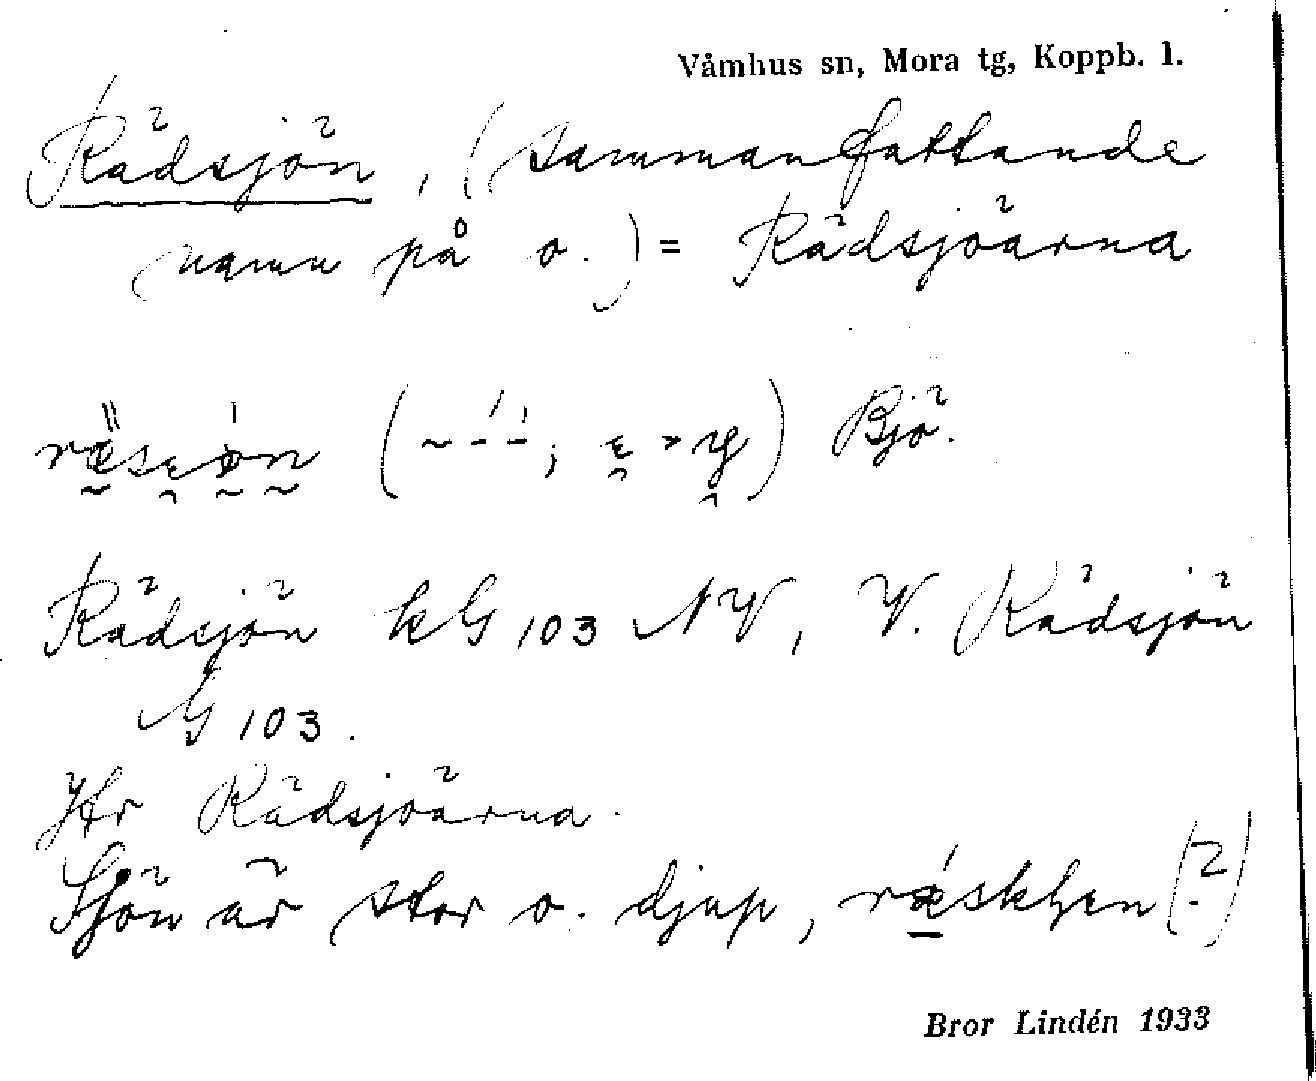 Våmhus sn, Mora tg, Koppb. l.
Rädsjön, (sammanfattande
namn på o.) = Rädsjöarna
Bjö.
Rädsjön kG 103 NV, V. Rädsjön
G 103.
Jfr Rädsjöarna.
Sjön är stor o. djup, (?)
Bror Lindén 1933